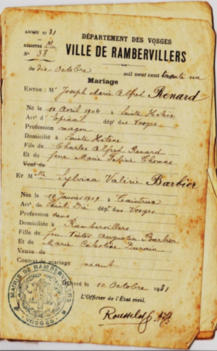 ANNÉE 31
DÉPARTEMENT DES VOSGES
VILLE DE RAMBERVILLERS
38
dix Octobre mil neuf cent trente un
Mariage
ENTRE : M Joseph Marie Alfred Renard
Né le Avril 1904 à Sainte Hélène
Arrt d'Epinal dépt des Vosges
Profession maçon
Domicilié à Sainte Hélène
Fils de Charles Alfred Renard
et de feue Marie
Et Mlle Valérie Barbier
Née le Janvier 1909 à
Arrt dépt des Vosges
Profession sans
Domiciliée à Rambervillers
Fille de feu Victor Augustin Barbier
et de Marie Célestine
Veuve de
Contrat de mariage néant
Délivré le 10 Octobre 1931
L'Officier de l'État civil,
MAIRIE DE RAMBERVILLERS
VOSGES